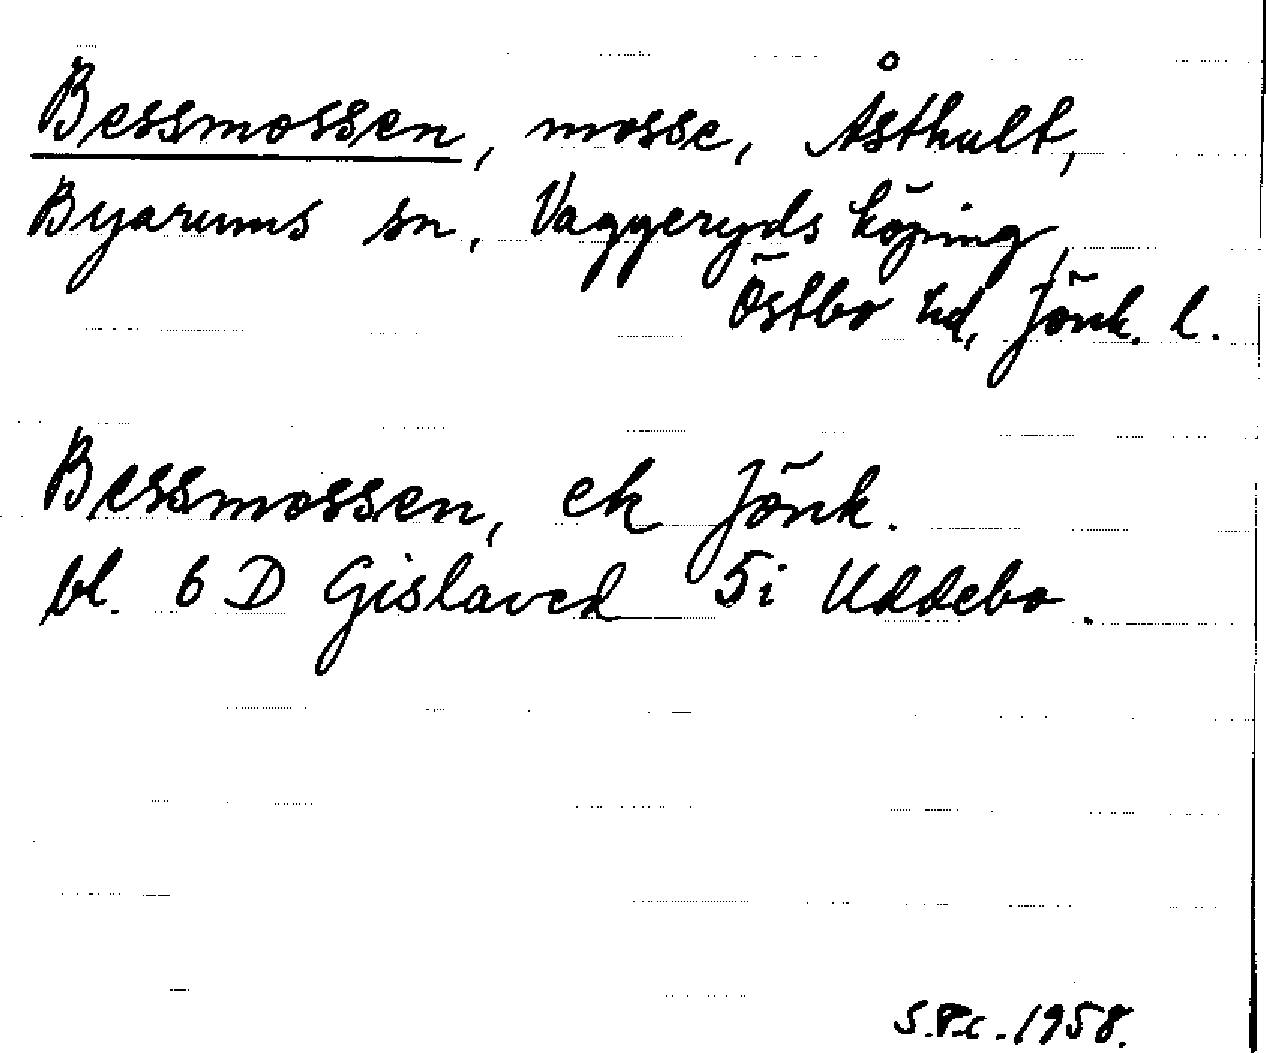 Bessmossen, mosse, Åsthult,
Byarums sn, Vaggeryds köping,
Östbo hd, Jönk. l.
Bessmossen, ek Jönk.
bl. 6 D Gislaved 5i Uddebo.
S.P.c. 1958.